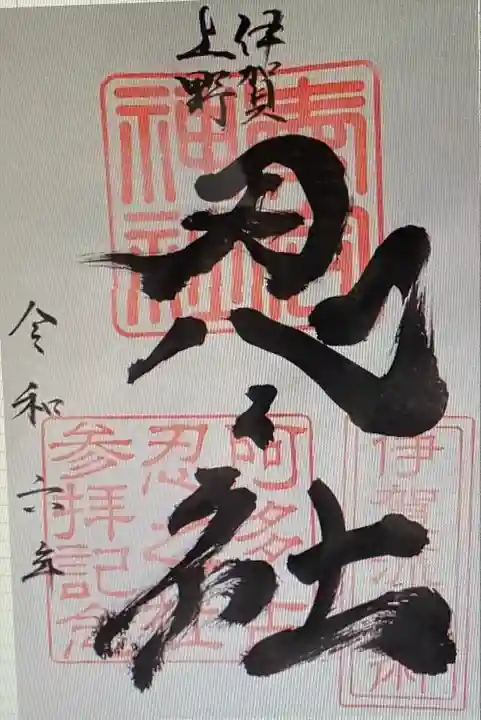 伊賀
上野
忍之社
令和六年
神社
伊賀流忍術
阿多古
忍之社
参拝記念